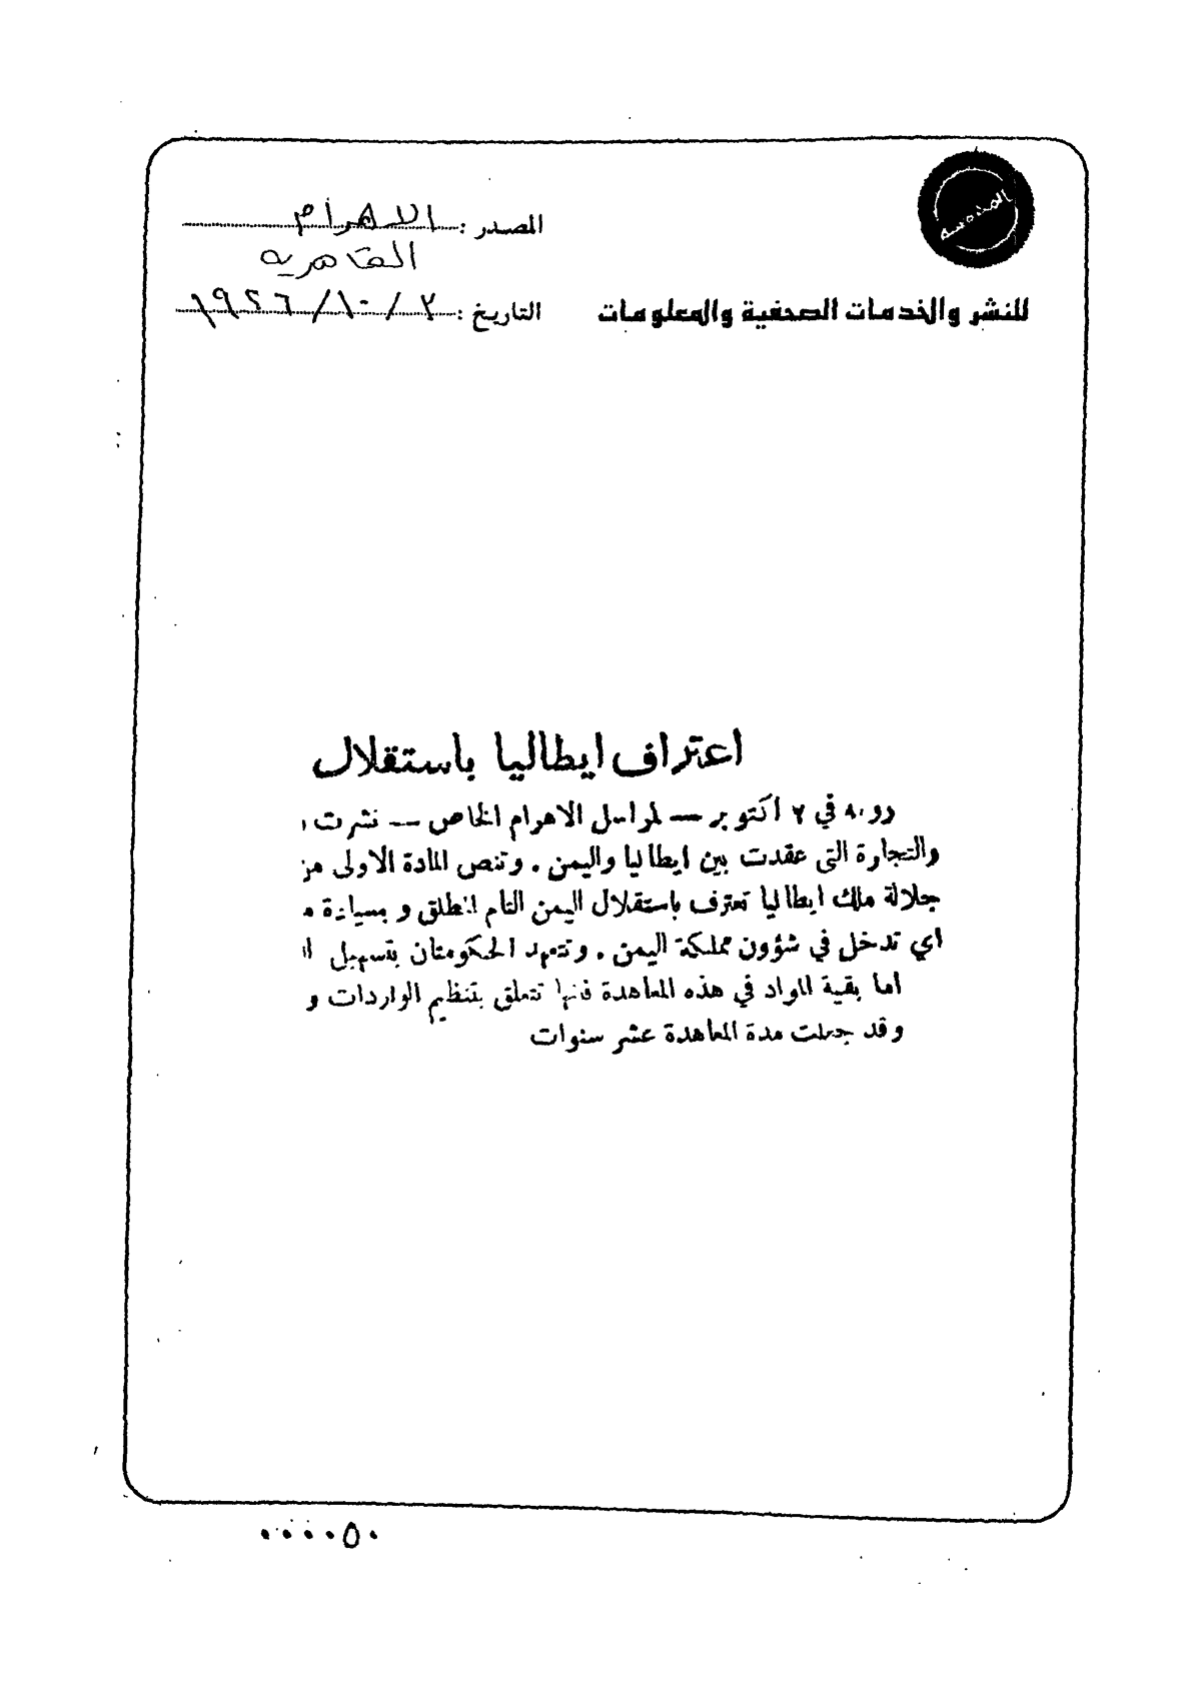 المصدر : الاهرام
القاهرية
للنشر والخدمات الصحفية والمعلومات
التاريخ : ٢ / ١٠ / ١٩٢٦
اعتراف ايطاليا باستقلال
في ٢ اكتوبر — لمراسل الاهرام الخاص — نشرت
والتجارة التي عقدت بين ايطاليا واليمن . وتنص المادة الاولى من
جلالة ملك ايطاليا تعترف باستقلال اليمن التام المطلق و بسيادة
اي تدخل في شؤون مملكة اليمن . وتتعهد الحكومتان بتسهيل
اما بقية المواد في هذه المعاهدة فانها تتعلق بتنظيم الواردات و
وقد جعلت مدة المعاهدة عشر سنوات
٠٠٠٠٥٠